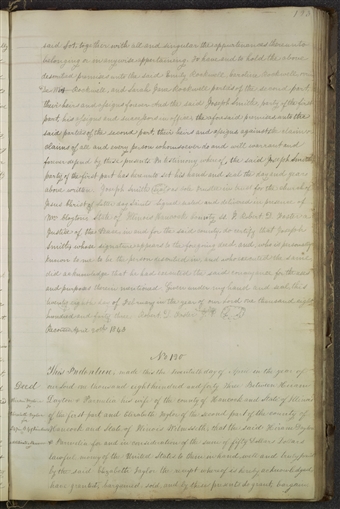 said Lot together with all and singular the appurtenances thereunto
belonging or in anywise appertaining. To have and to hold the above
described premises unto the said Emily Rockwell
Rockwell, and Sarah Jane Rockwell parties of the second part
their heirs and assigns forever. And the said Joseph Smith, party of the first
part, his assigns and
said parties of the second part, their heirs and assigns against the
claims of all and every person whomsoever do and will warrant and
forever defend by these presents. In testimony whereof, the said Joseph Smith
party of the first part has hereunto set his hand and seal the day and year
above written. Joseph Smith as sole Trustee in trust for the church of
Jesus Christ of Latter day Saints. Signed sealed and delivered in presence of
State of Illinois Hancock County ss. I Robert D. Foster a
Justice of the Peace in and for the said county do certify that Joseph
Smith, whose signature appears to the foregoing deed and who is personally
known to me to be the person described in, and who executed the same
did acknowledge that he had executed the said conveyance for the uses
and purposes therein mentioned. Given under my hand and seal this
twenty eighth day of February in the year of our Lord one thousand eight
hundred and forty three. Robert D. Foster J.P.
Recorded 20th 1843
No 130
This Indenture, made this day of April in the year of
Deed
our Lord one thousand eight hundred and forty three Between Hiram
Dayton & Permelia his wife of the county of Hancock and State of Illinois
of the first part and Elizabeth Taylor of the second part of the county of
Hancock and State of Illinois Witnesseth, that the said Hiram Dayton
& Permelia for and in consideration of the sum of fifty Dollars
lawful money of the United States to them in hand well and truly paid
by the said Elizabeth Taylor the receipt whereof is hereby acknowledged
have granted, bargained, sold, and by these presents do grant bargain